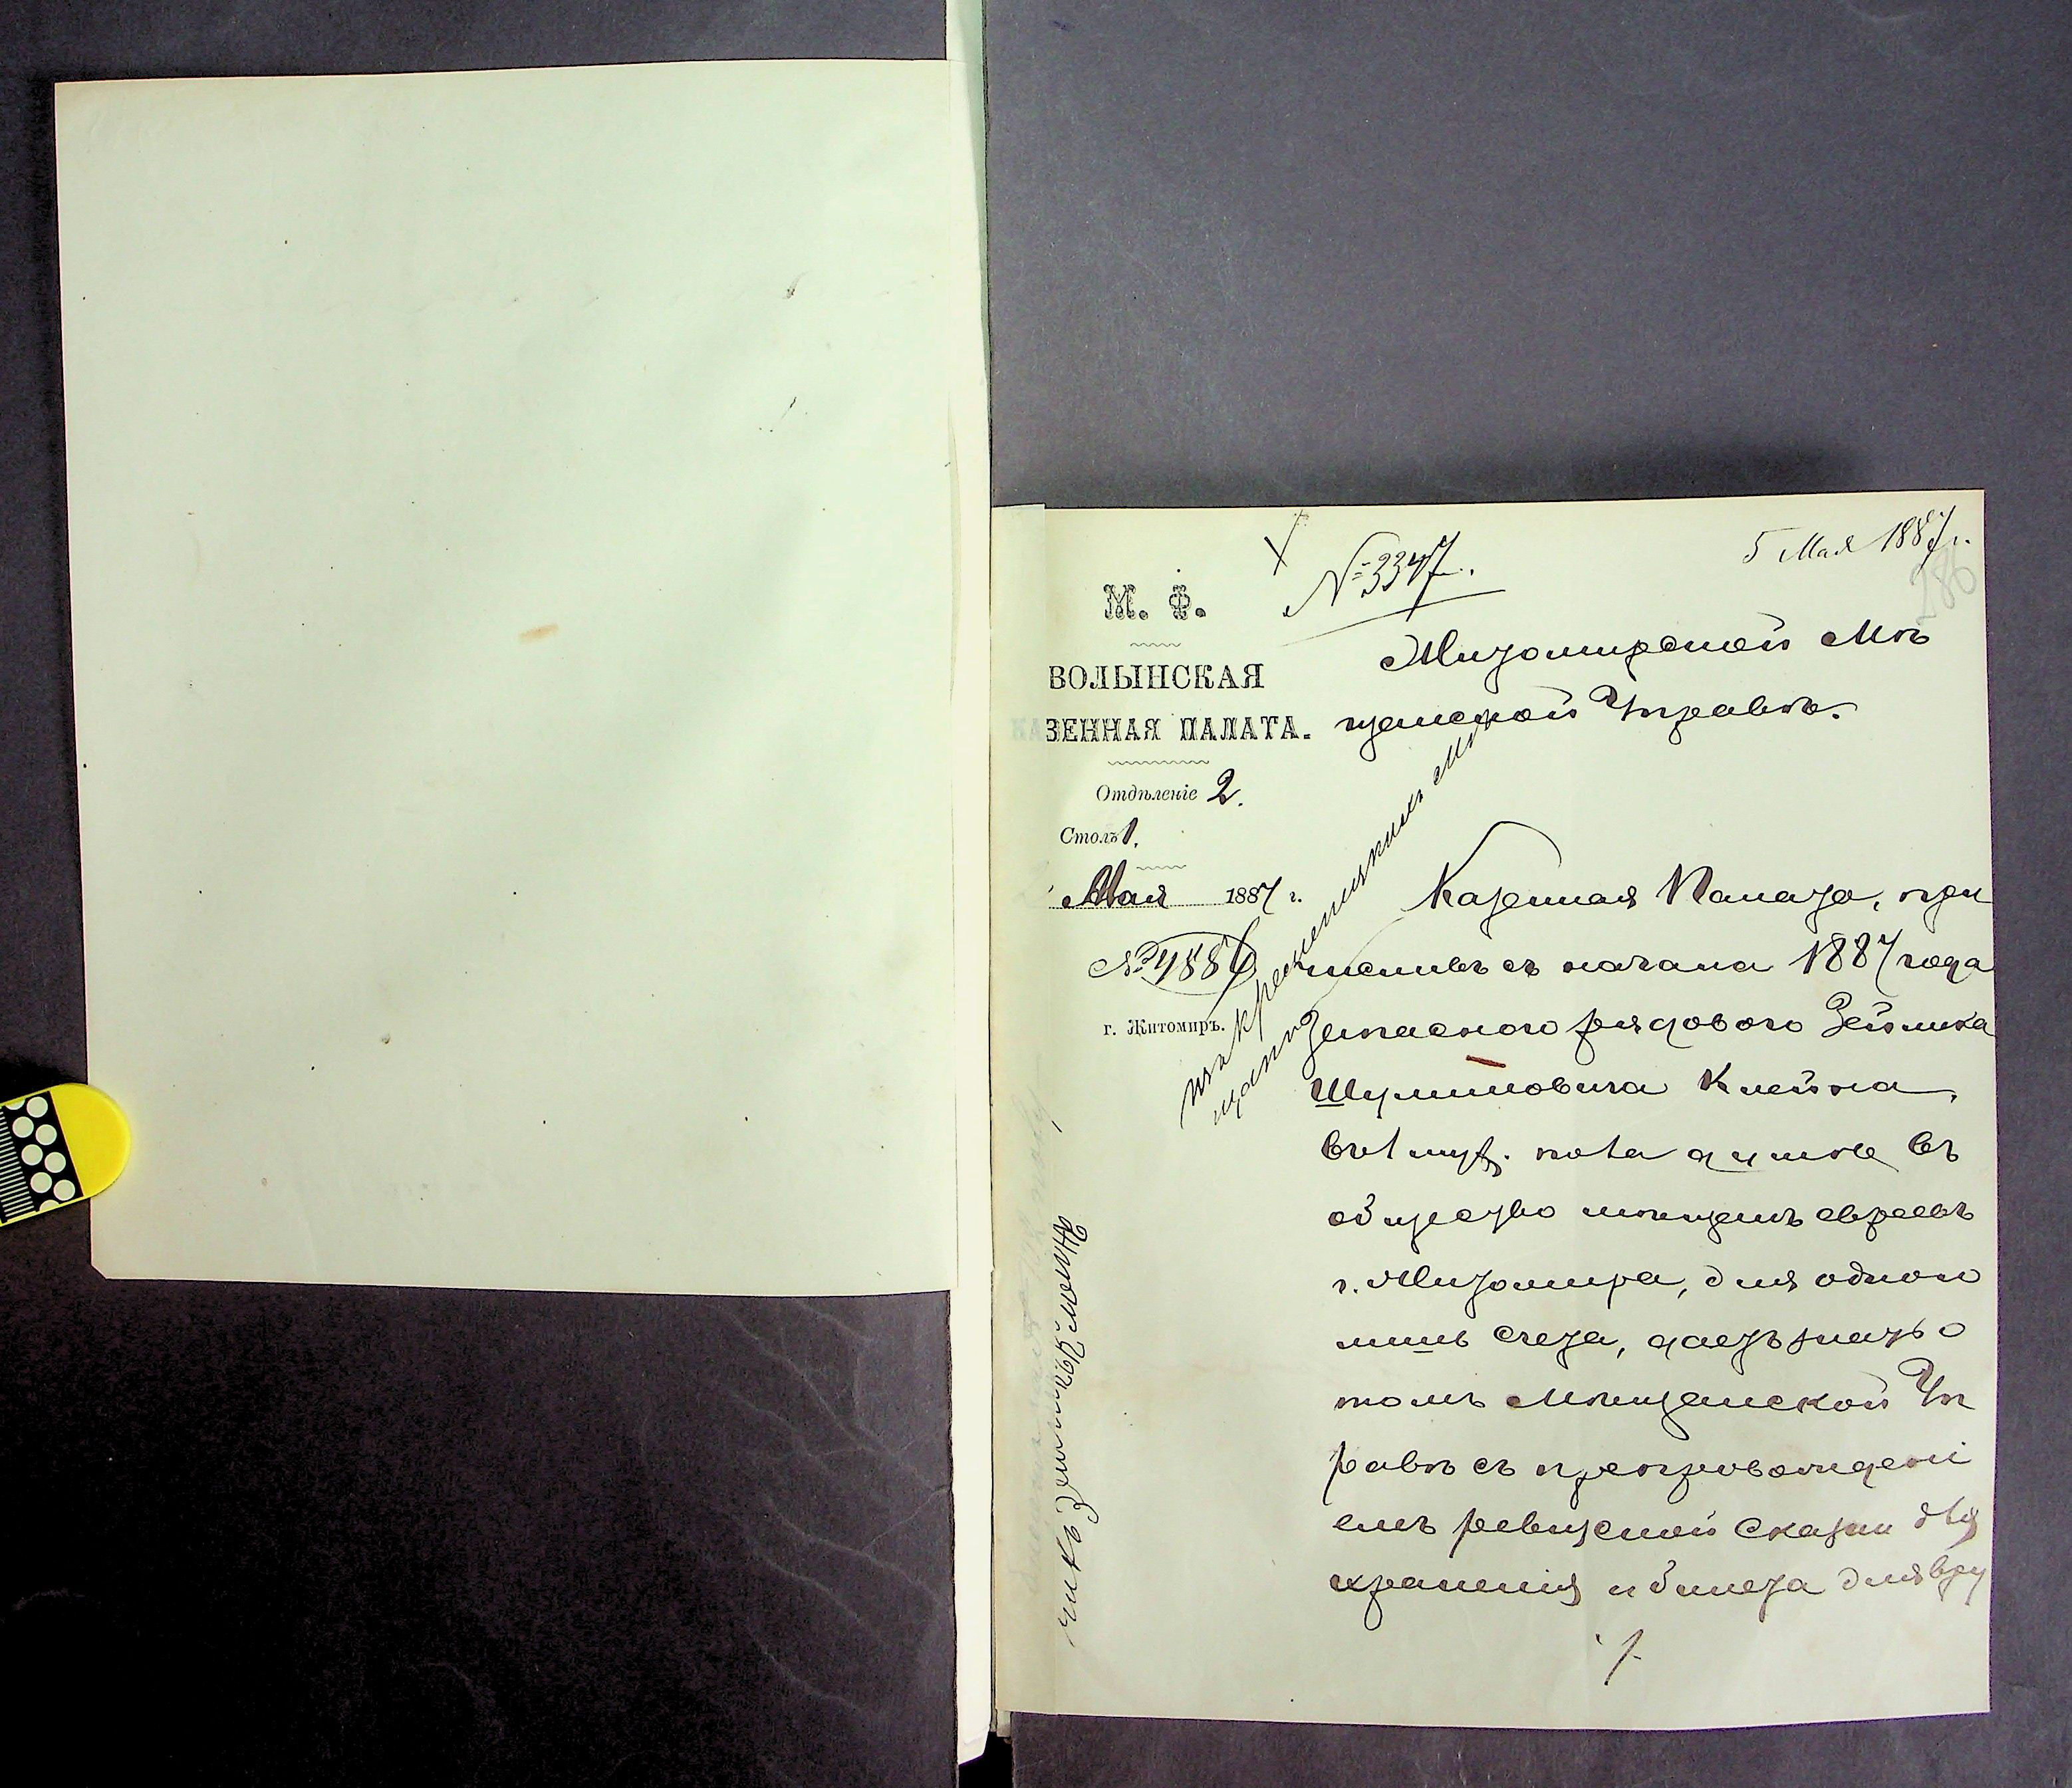 5 Мая 1887 г.
№ 3347.
286
М. Ф.
ВОЛЫНСКАЯ
КАЗЕННАЯ ПАЛАТА.
Отдѣленіе 2.
Столъ 1.
Мая 1887 г.
№ 4886
г. Житомиръ.
Житомирской Мѣ
щанской Управѣ.
Казенная Палата, при
числивъ съ начала 1887 года
Запаснаго рядового Зейлика
Шулимовича Клейна,
въ 1 муж. пола душѣ въ
общество мѣщанъ евреевъ
г. Житомира, для одного
лишь счета, даетъ знать о
томъ Мѣщанской Уп
равѣ съ препровожденi
емъ ревизской сказки для
храненія и билета для вру